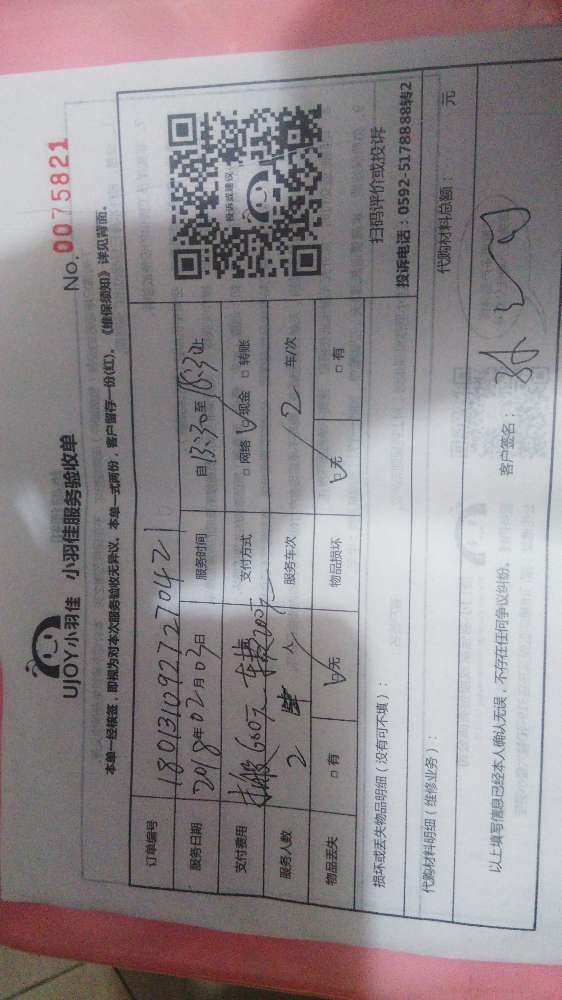 UJOY小羽佳 小羽佳服务验收单
No.0075821
本单一经核签，即视为对本次服务验收无异议，本单一式两份，客户留存一份(红)，《维保须知》详见背面。
订单编号 180131092727042
服务日期 2018年02月03日 服务时间 自13:30至18:30止
支付费用 搬 600元 200元 支付方式 □网络 ☑现金 □转账
服务人数 2 人 服务车次 2 车/次
物品丢失 □有 ☑无 物品损坏 ☑无 □有
投诉或建议
扫码评价或投诉
投诉电话：0592-5178888转2
损坏或丢失物品明细（没有可不填）：
代购材料明细（维修业务）： 代购材料总额： 元
以上填写信息已经本人确认无误，不存在任何争议纠纷。 客户签名：